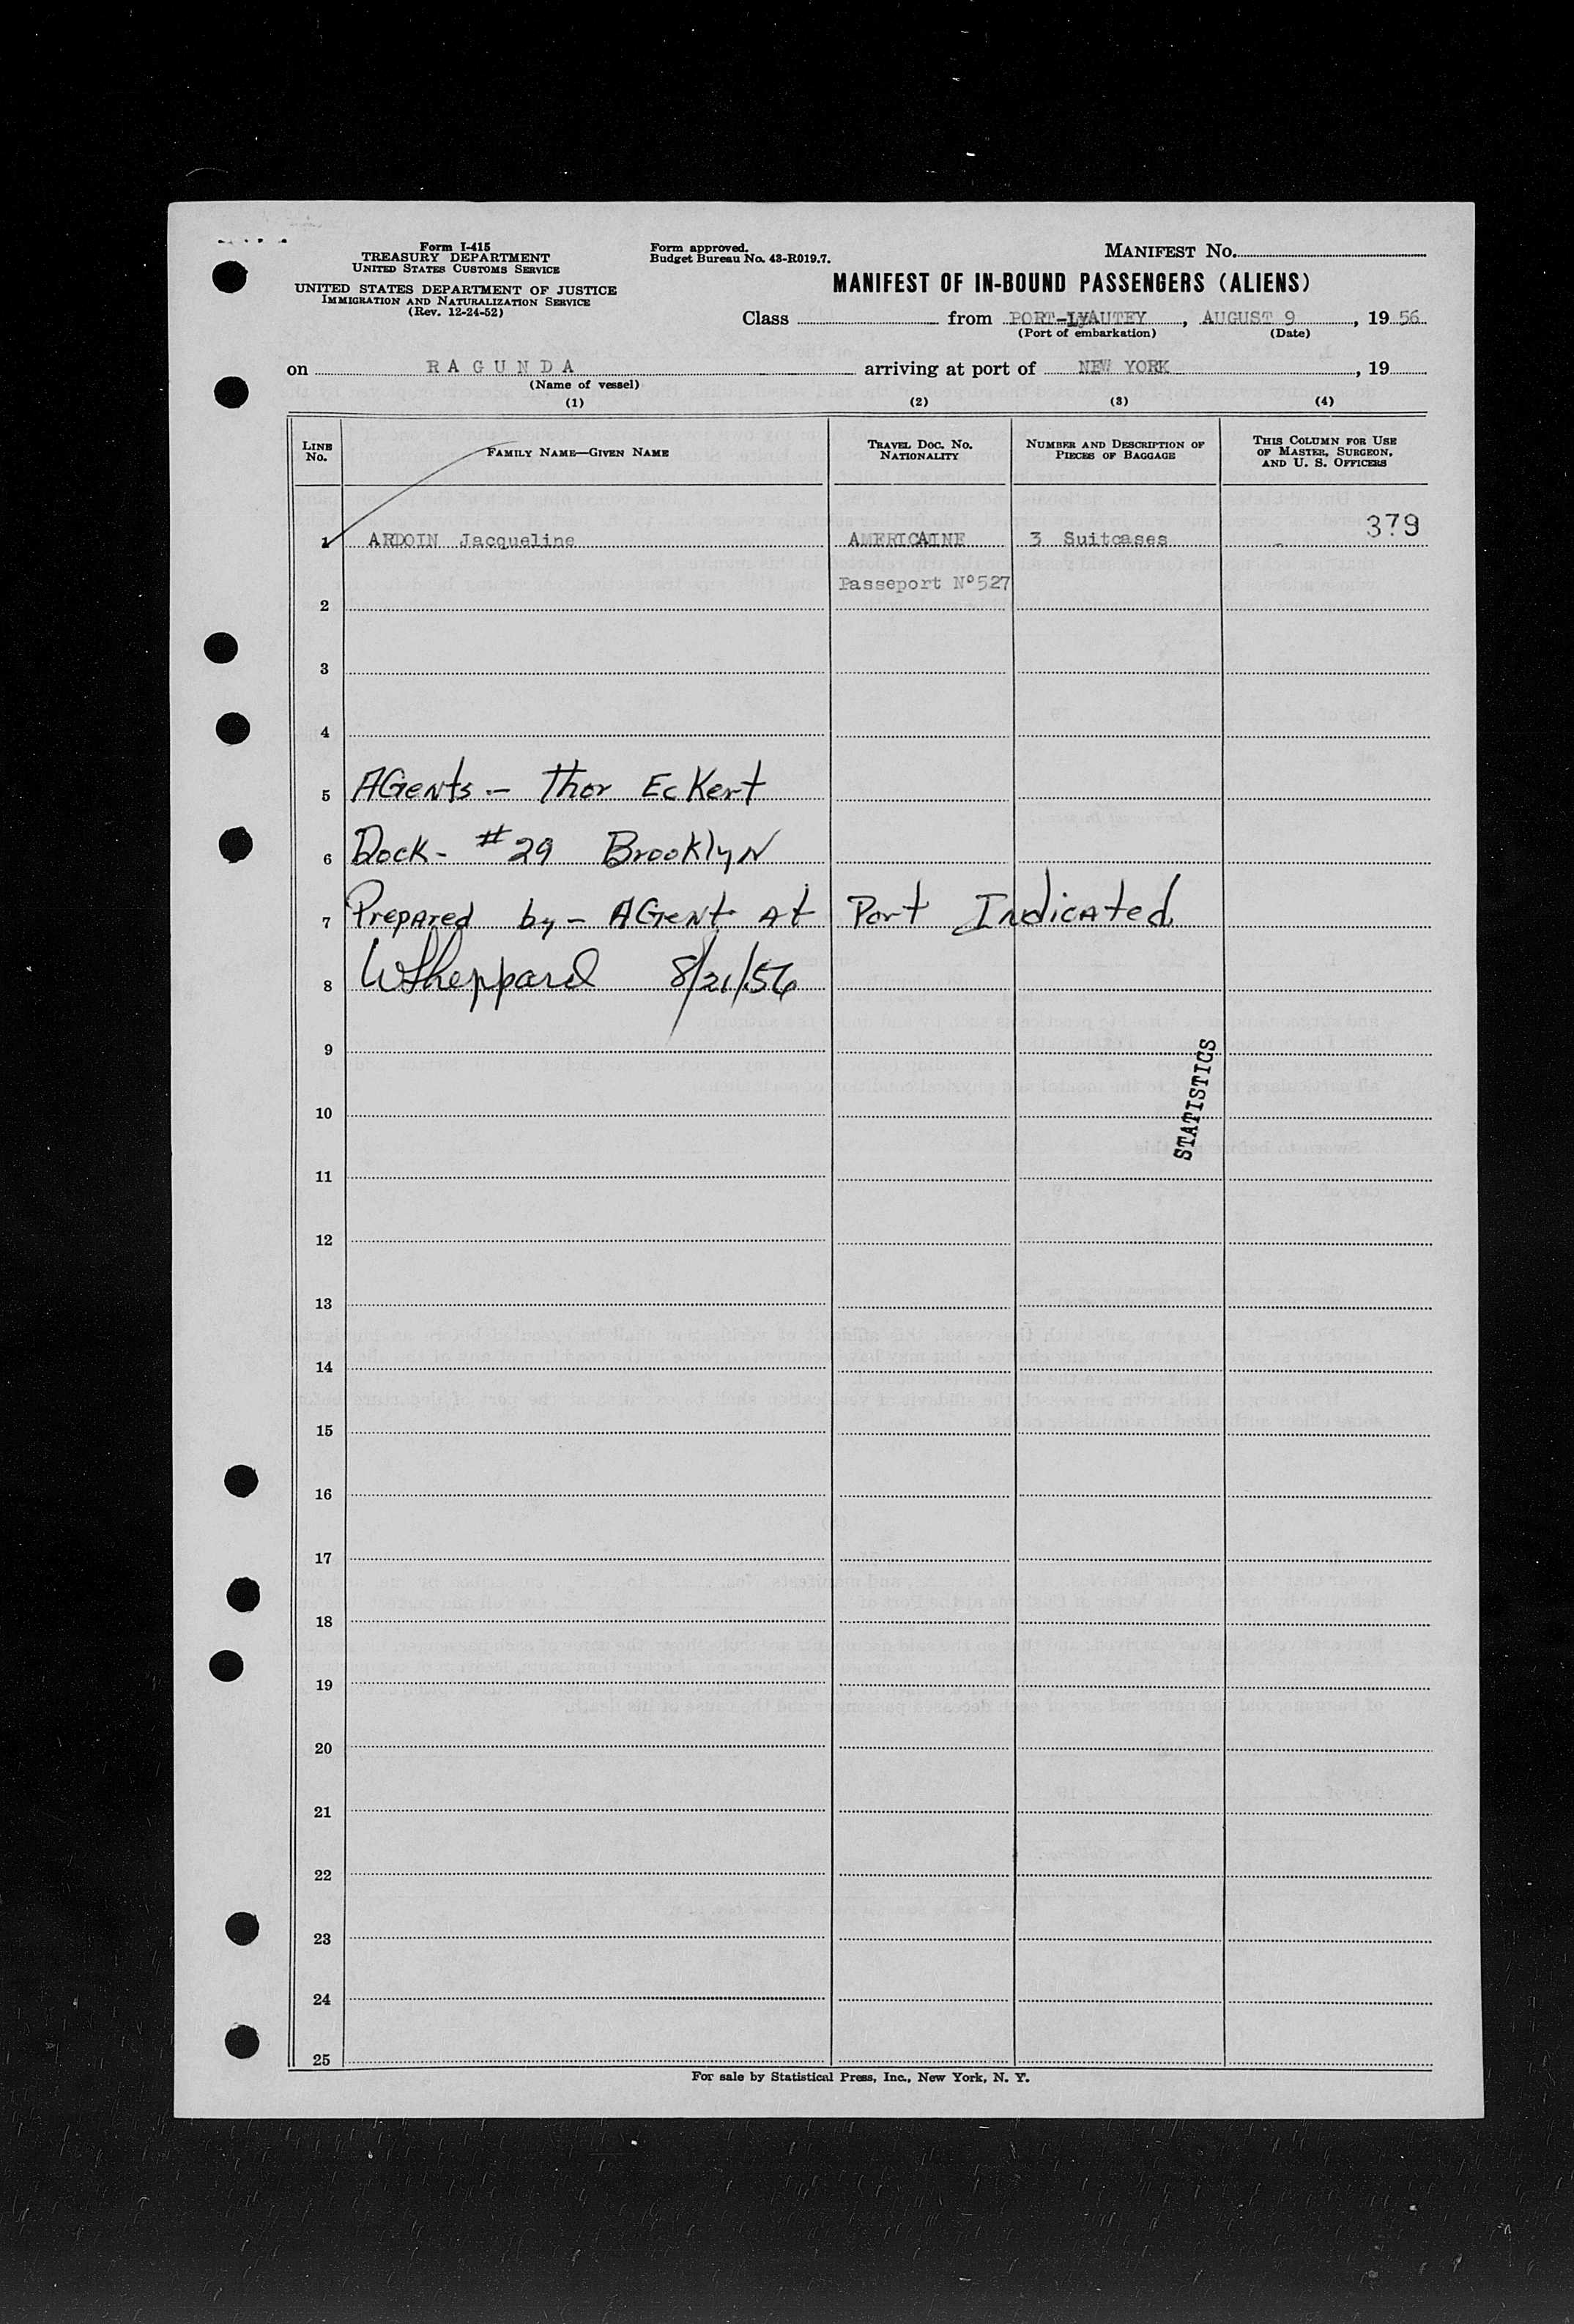 Form I-415
TREASURY DEPARTMENT
UNITED STATES CUSTOMS SERVICE
UNITED STATES DEPARTMENT OF JUSTICE
IMMIGRATION AND NATURALIZATION SERVICE
(Rev. 12-24-52)
Form approved.
Budget Bureau No. 43-R019.7.
MANIFEST No.
MANIFEST OF IN-BOUND PASSENGERS (ALIENS)
Class from PORT-LYAUTEY, AUGUST 9, 19 56
(Port of embarkation) (Date)
on R A G U N D A arriving at port of NEW YORK, 19
(Name of vessel)
(1) (2) (3) (4)
LINE No. FAMILY NAME—GIVEN NAME TRAVEL DOC. No. NATIONALITY NUMBER AND DESCRIPTION OF PIECES OF BAGGAGE THIS COLUMN FOR USE OF MASTER, SURGEON, AND U. S. OFFICERS
1 ARDOIN Jacqueline AMERICAINE 3 Suitcases 379
Passeport N°527
2
3
4
5 AGents - Thor EcKert
6 Dock - #29 Brooklyn
7 Prepared by - AGent At Port Indicated
8 WSheppard 8/21/56
9
STATISTICS
10
11
12
13
14
15
16
17
18
19
20
21
22
23
24
25
For sale by Statistical Press, Inc., New York, N. Y.